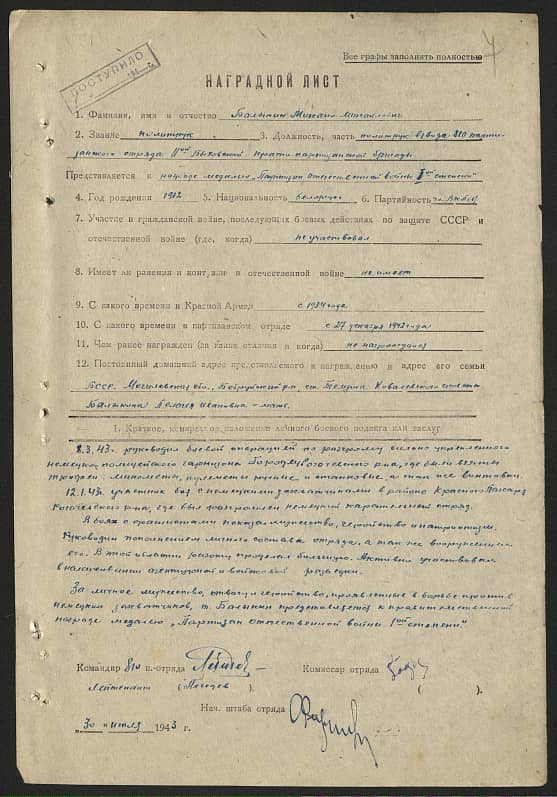 Все графы заполнять полностью
ПОСТУПИЛО
НАГРАДНОЙ ЛИСТ
1. Фамилия, имя и отчество Балыкин Михаил Михайлович
2. Звание политрук 3. Должность, часть политрук взвода 810 парти-
занского отряда партизанской бригады
Представляется к награде медалью „Партизан отечественной войны I ой степени"
4. Год рождения 1912 5. Национальность белорус 6. Партийность
7. Участие в гражданской войне, последующих боевых действиях по защите СССР и
отечественной войне (где, когда) не участвовал
8. Имеет ли ранения и контузии в отечественной войне не имеет
9. С какого времени в Красной Армии с 1934 года
10. С какого времени в партизанском отряде с 27 декабря 1942 года
11. Чем ранее награжден (за какие отличия и когда) не награждался
12. Постоянный домашний адрес представляемого к награждению и адрес его семьи
БССР. Могилевская обл., Бобруйский р-н, ст. Телуша
Балыкина Ивановна - мать.
1. Краткое, конкретное изложение личного боевого подвига или заслуг
8.3.43г. руководил боевой операцией по разгрому сильно укрепленного
немецко-полицейского гарнизона Рогачевского р-на, где были взяты
трофеи: минометы, пулеметы ручные и станковые, а так же винтовки.
12.1.43г. участвовал бой с немецкими захватчиками в районе Красного
Рогачевского р-на, где был разгромлен немецкий карательный отряд.
В боях с фашистами показал мужество, геройство и патриотизм.
Руководил пополнением личного состава отряда, а так же вооружением
его. В этой области работу проделал большую. Активно участвовал
в налаживании агентурной и войсковой разведки.
За личное мужество, отвагу и геройство, проявленные в борьбе против
немецких захватчиков, т. Балыкин представляется к правительственной
награде медалью „Партизан отечественной войны I ой степени".
Командир 810 п.-отряда
Комиссар отряда
Лейтенант ( ).
( ).
Нач. штаба отряда
„30 июля 1943 г.